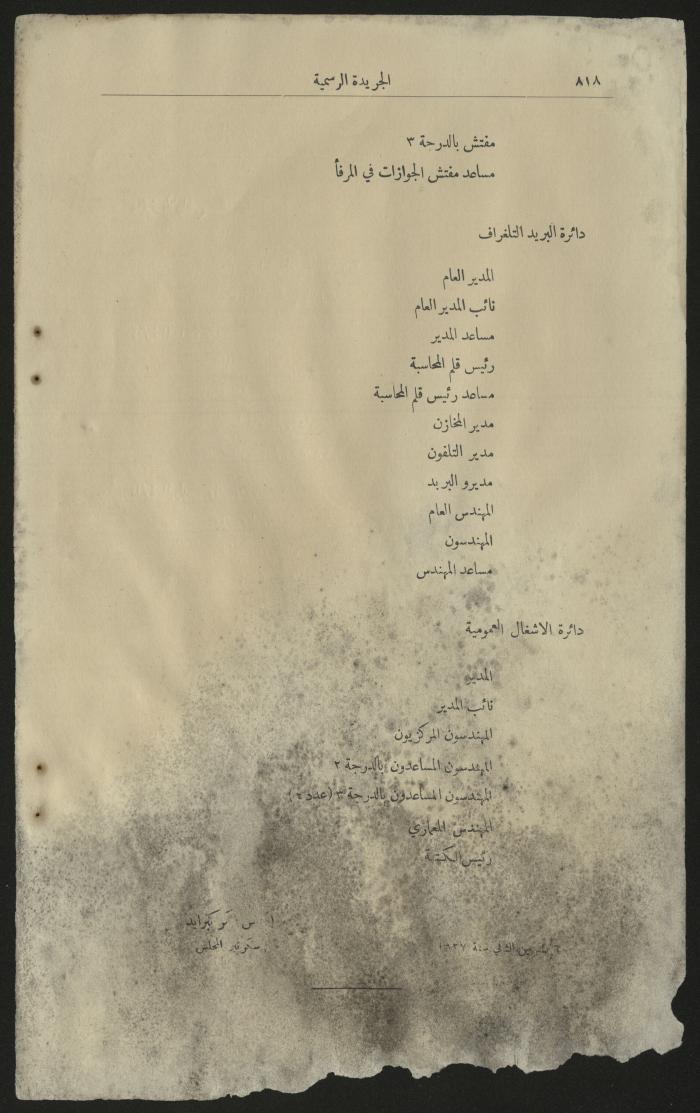 ٨١٨
الجريدة الرسمية
مفتش بالدرجة ٣
مساعد مفتش الجوازات في المرفأ
دائرة البريد التلغراف
المدير العام
نائب المدير العام
مساعد المدير
رئيس قلم المحاسبة
مساعد رئيس قلم المحاسبة
مدير المخازن
مدير التلفون
مديرو البريد
المهندس العام
المهندسون
مساعد المهندس
دائرة الاشغال العمومية
المدير
نائب المدير
المهندسون المركزيون
المهندسون المساعدون بالدرجة ٢
المهندسون المساعدون بالدرجة ٣ (عدد
المهندس المعماري
رئيس الكتبة
س
سكرتير المجلس
تشرين الثاني سنة ١٩٣٧